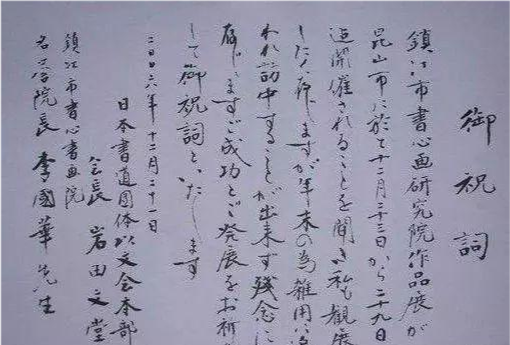 御祝詞
鎮江市書心画研究院作品展が
昆山市に於て十二月二十三日から二十九日
迄開催されることを聞き私も観展
したく存じますが年末の為雑用に
われ訪中することが出来ず残念に
存じますご成功とご発展をお祈
して御祝詞といたします
二〇〇六年十二月二十一日
日本書道団体以文会本部
会長 岩田文堂
鎮江市書心書画院
名誉院長 李國華先生